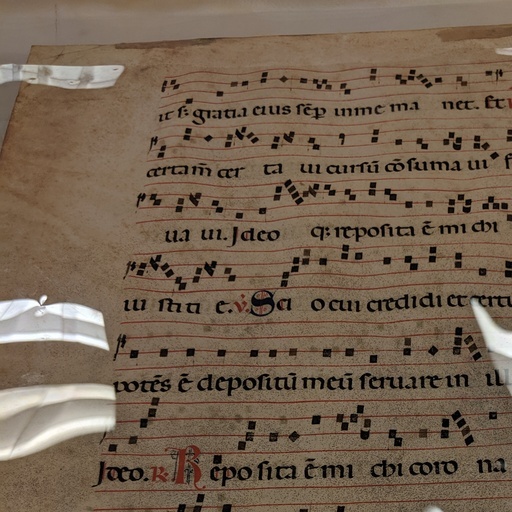 ut s: gratia eius sēp inme ma net. Et
certam̄ cer ta ui cursū cōsuma ui f
ua ui. Ideo q: reposita ē mi chi
iu stiti e. v̇. Sci o cui credidi et certu
potēs ē depositū meū seruare in ill
Ideo. ꝶ. Repo sita ē mi chi coro na